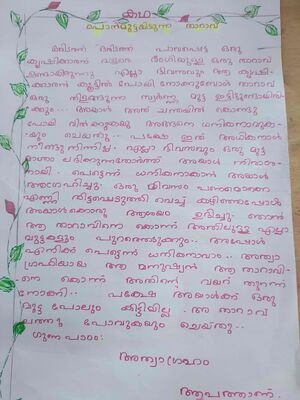 കഥ
പൊന്മുട്ടയിടുന്ന താറാവ്
ഒരിടത്ത് ഒരിടത്ത് പാവപ്പെട്ട ഒരു
കൃഷിക്കാരന് വളരെ ഭംഗിയുള്ള ഒരു താറാവ്
ഉണ്ടായിരുന്നു എല്ലാ ദിവസവും ആ കൃഷി-
ക്കാരൻ കൂട്ടിൽ പോയി നോക്കുമ്പോൾ താറാവ്
ഒരു തിളങ്ങുന്ന സ്വർണ്ണ മുട്ട ഇട്ടിട്ടുണ്ടായിരി-
ക്കും... അയാൾ അത് ചന്തയിൽ കൊണ്ടു
പോയി വിൽക്കുകയും അങ്ങനെ ധനികനാവുക-
യും ചെയ്തു... പക്ഷേ ഇത് അധികനാൾ
നീണ്ടുനിന്നില്ല. എല്ലാ ദിവസവും ഒരു മുട്ട
മാത്രം ലഭിക്കുന്നതോർത്ത് അയാൾ നിരാശ-
നായി. പെട്ടെന്ന് ധനികനാകാൻ അയാൾ
ആഗ്രഹിച്ചു. ഒരു ദിവസം പണമൊക്കെ
എണ്ണി തിട്ടപ്പെടുത്തി വെച്ച് കഴിഞ്ഞപ്പോൾ
അയാൾക്കൊരു ആശയം ഉദിച്ചു. ഞാൻ
ആ താറാവിനെ കൊന്ന് അതിലുള്ള എല്ലാ
മുട്ടകളും പുറത്തെടുക്കും.. അപ്പോൾ
എനിക്ക് പെട്ടെന്ന് ധനികനാവാം.. അത്യാ
ഗ്രഹിയായ ആ മനുഷ്യൻ ആ താറാവി-
നെ കൊന്ന് അതിന്റെ വയറ് തുറന്ന്
നോക്കി.. പക്ഷേ അയാൾക്ക് ഒരു
മുട്ട പോലും കിട്ടിയില്ല. ആ താറാവ്
ചത്തു പോവുകയും ചെയ്തു..
ഗുണപാഠം:
അത്യാഗ്രഹം
ആപത്താണ്.